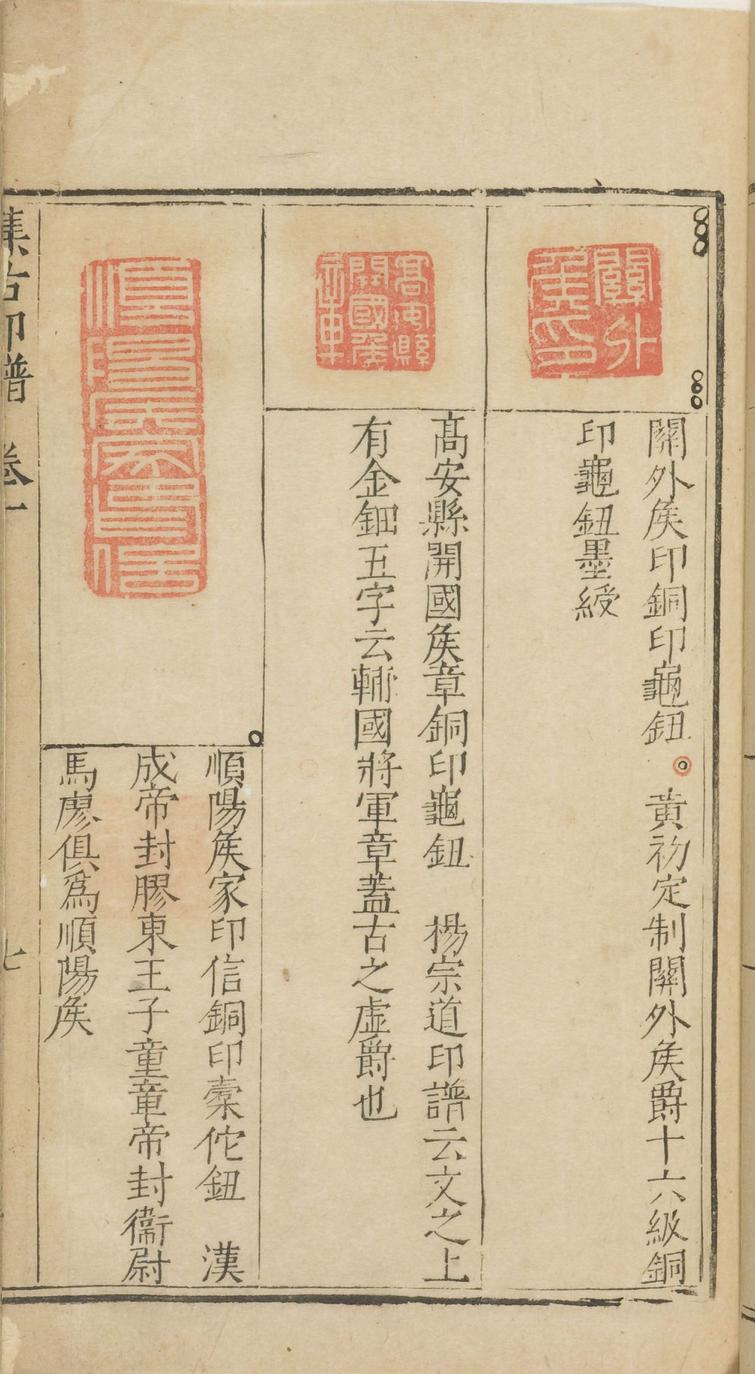 關外
矦印
關外矦印銅印龜鈕 黃初定制關外矦爵十六級銅
印龜鈕墨綬
高安縣
開國矦
高安縣開國矦章銅印龜鈕 楊宗道印譜云文之上
有金鈿五字云輔國將軍章蓋古之虛爵也
順陽矦家印信
順陽矦家印信銅印橐佗鈕 漢
成帝封膠東王子童章帝封衞尉
馬廖俱爲順陽矦
集古印譜 卷一
七